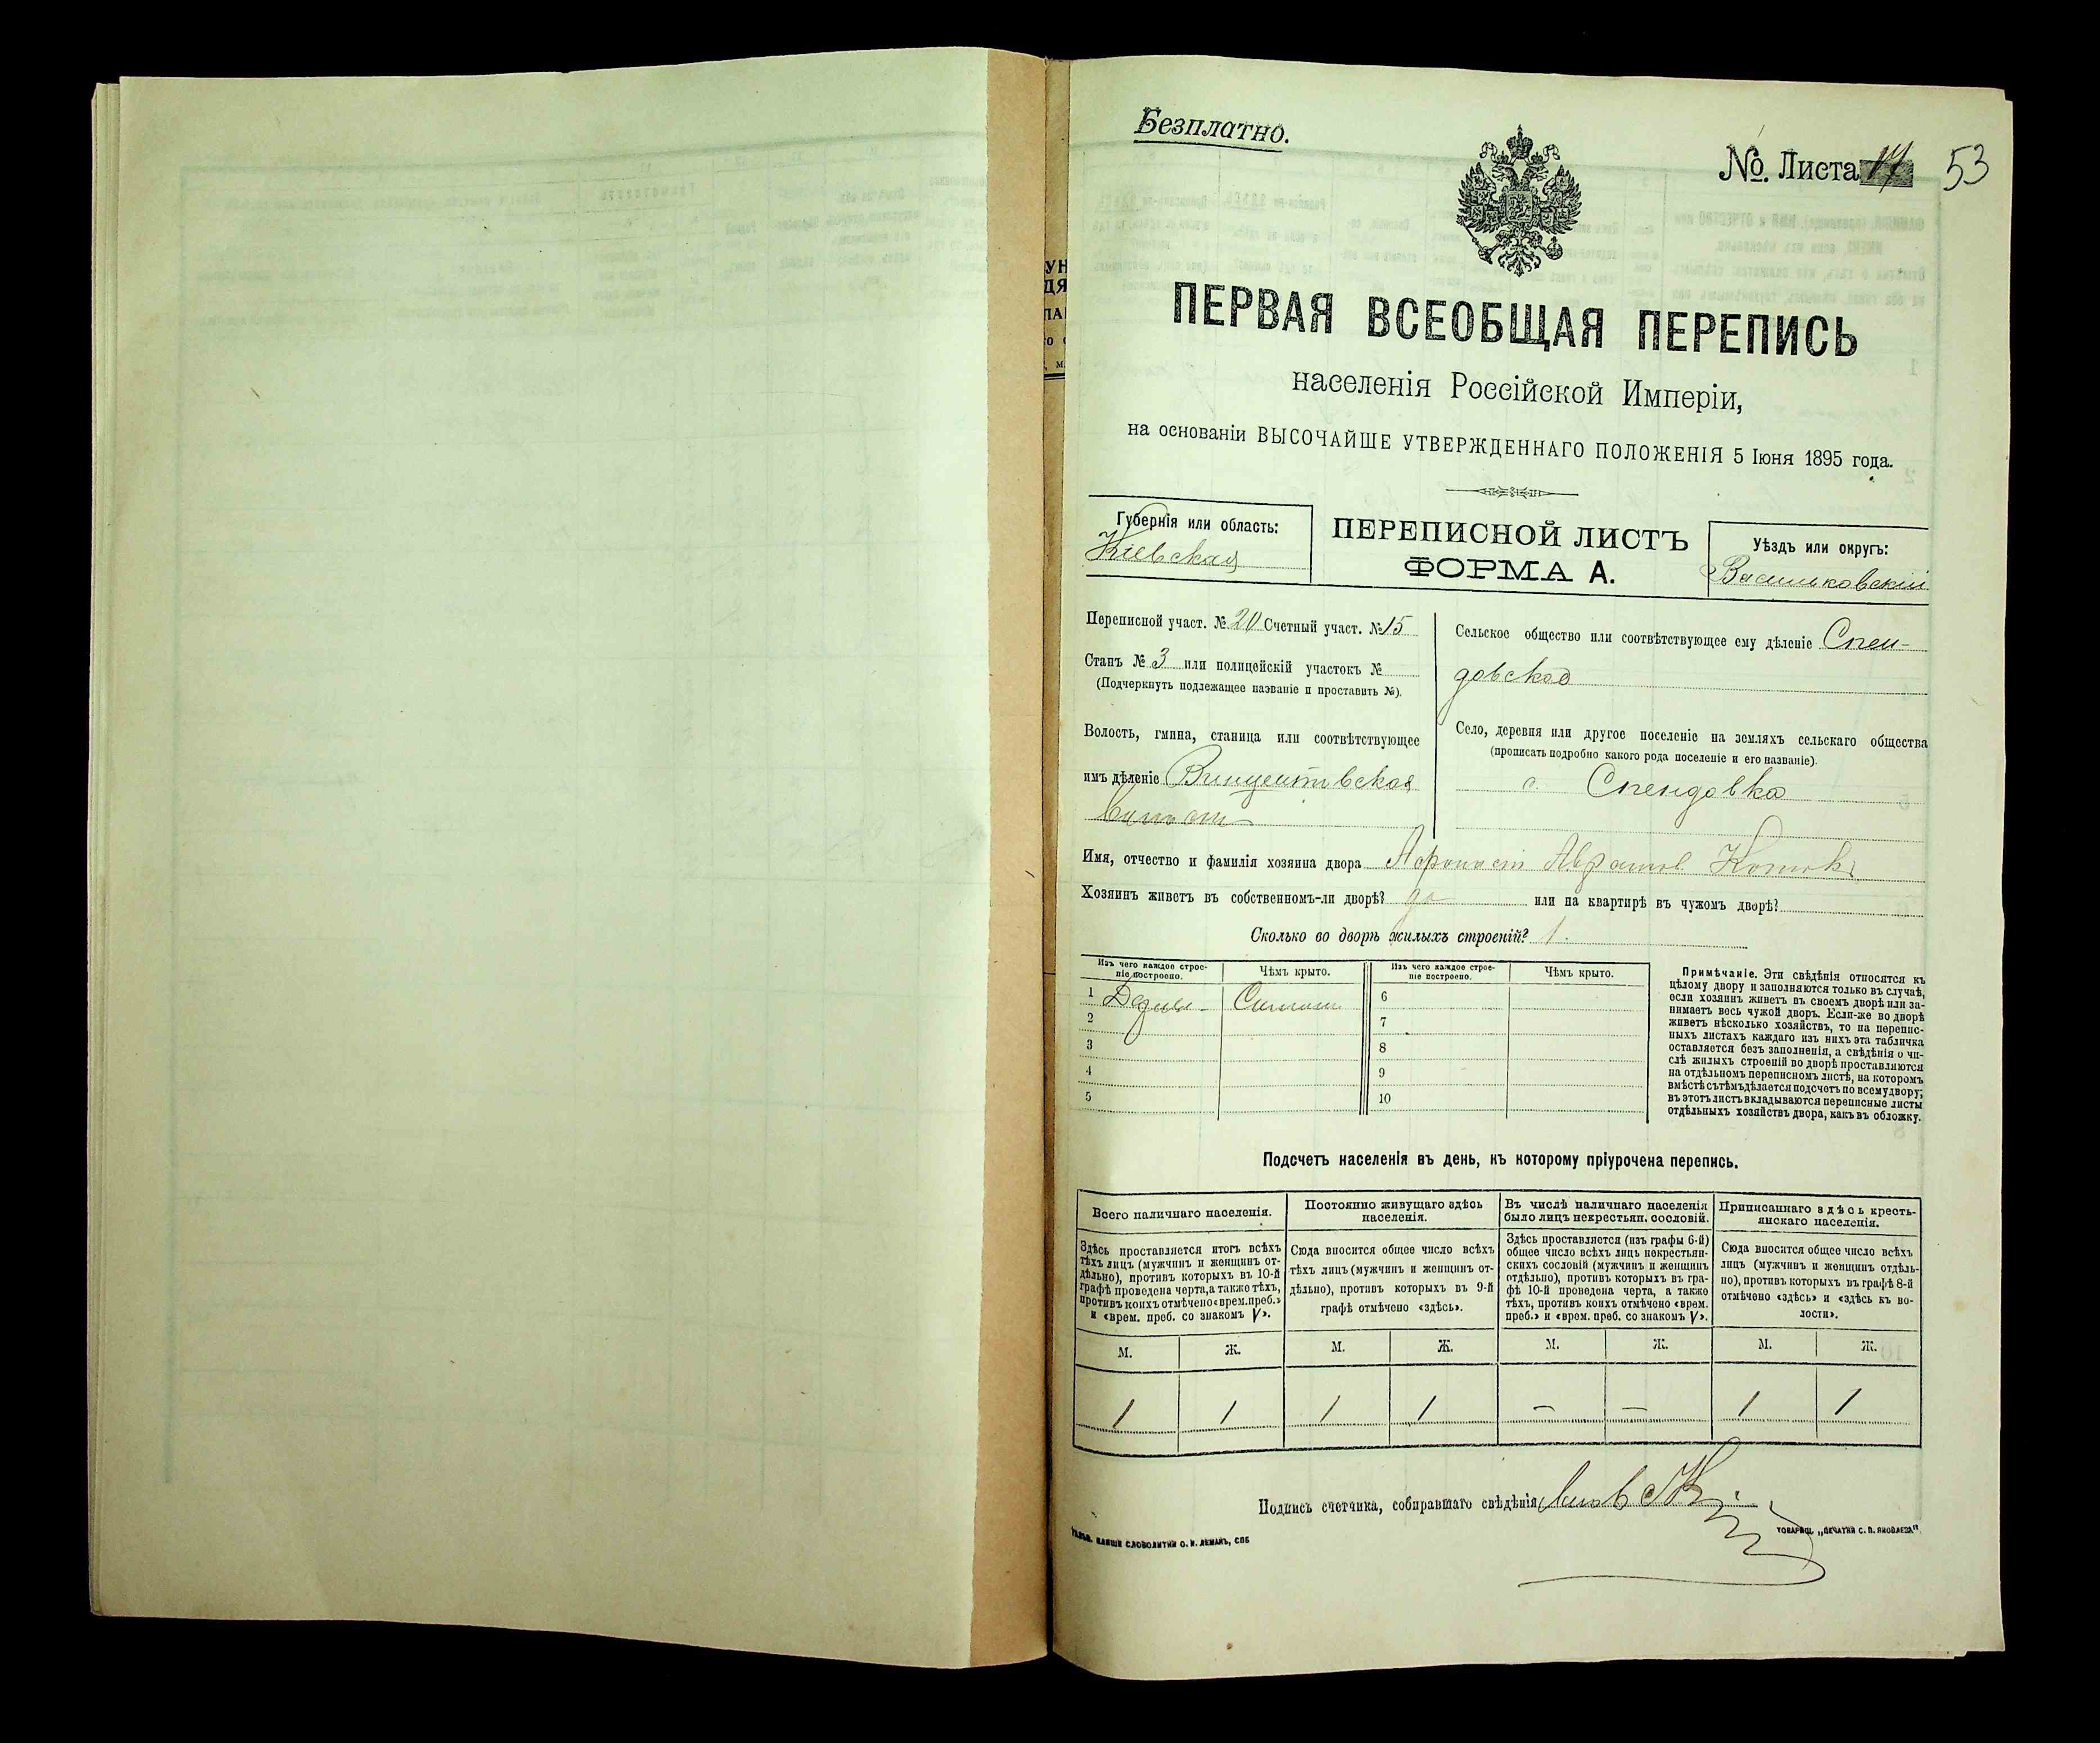 Безплатно.
№. Листа 17
53
ПЕРВАЯ ВСЕОБЩАЯ ПЕРЕПИСЬ
населенія Россійской Имперіи,
на основаніи ВЫСОЧАЙШЕ УТВЕРЖДЕННАГО ПОЛОЖЕНІЯ 5 Іюня 1895 года.
Губернія или область:
Кіевская
ПЕРЕПИСНОЙ ЛИСТЪ
ФОРМА А.
Уѣздъ или округъ:
Васильковскій
Переписной участ. № 20 Счетный участ. № 15
Станъ № 3 или полицейскій участокъ №
(Подчеркнуть подлежащее названіе и проставить №).
Волость, гмина, станица или соотвѣтствующее
имъ дѣленіе Винцентовская
Сельское общество или соотвѣтствующее ему дѣленіе Спен-
довское
Село, деревня или другое поселеніе на земляхъ сельскаго общества
(прописать подробно какого рода поселеніе и его названіе).
с. Спендовка
Имя, отчество и фамилія хозяина двора
Хозяинъ живетъ въ собственномъ-ли дворѣ? да или на квартирѣ въ чужомъ дворѣ?
Сколько во дворѣ жилыхъ строеній? 1.
Изъ чего каждое строе-
ніе построено.
Чѣмъ крыто.
Изъ чего каждое строе-
ніе построено.
Чѣмъ крыто.
1
6
2
7
3
8
4
9
5
10
Примѣчаніе. Эти свѣдѣнія относятся къ
цѣлому двору и заполняются только въ случаѣ,
если хозяинъ живетъ въ своемъ дворѣ или за-
нимаетъ весь чужой дворъ. Если-же во дворѣ
живетъ нѣсколько хозяйствъ, то на перепис-
ныхъ листахъ каждаго изъ нихъ эта табличка
оставляется безъ заполненія, а свѣдѣнія о чи-
слѣ жилыхъ строеній во дворѣ проставляются
на отдѣльномъ переписномъ листѣ, на которомъ
вмѣстѣ съ тѣмъ дѣлается подсчетъ по всему двору;
въ этотъ листъ вкладываются переписные листы
отдѣльныхъ хозяйствъ двора, какъ въ обложку.
Подсчетъ населенія въ день, къ которому пріурочена перепись.
Всего наличнаго населенія.
Здѣсь проставляется итогъ всѣхъ
тѣхъ лицъ (мужчинъ и женщинъ от-
дѣльно), противъ которыхъ въ 10-й
графѣ проведена черта, а также тѣхъ,
противъ коихъ отмѣчено «врем. преб.»
и «врем. преб. со знакомъ V».
Постоянно живущаго здѣсь
населенія.
Сюда вносится общее число всѣхъ
тѣхъ лицъ (мужчинъ и женщинъ от-
дѣльно), противъ которыхъ въ 9-й
графѣ отмѣчено «здѣсь».
Въ числѣ наличнаго населенія
было лицъ некрестьян. сословій.
Здѣсь проставляется (изъ графы 6-й)
общее число всѣхъ лицъ некрестьян-
скихъ сословій (мужчинъ и женщинъ
отдѣльно), противъ которыхъ въ гра-
фѣ 10-й проведена черта, а также
тѣхъ, противъ коихъ отмѣчено «врем.
преб.» и «врем. преб. со знакомъ V».
Приписаннаго здѣсь кресть-
янскаго населенія.
Сюда вносится общее число всѣхъ
лицъ (мужчинъ и женщинъ отдѣль-
но), противъ которыхъ въ графѣ 8-й
отмѣчено «здѣсь» и «здѣсь къ во-
лости».
М. Ж. М. Ж. М. Ж. М. Ж.
1 1 1 1 — — 1 1
Подпись счетчика, собиравшаго свѣдѣнія
СЛОВОЛИТНИ О. И. ЛЕМАНЪ, СПБ
ТОВАРИЩ. „ПЕЧАТНИ С. П. ЯКОВЛЕВА"